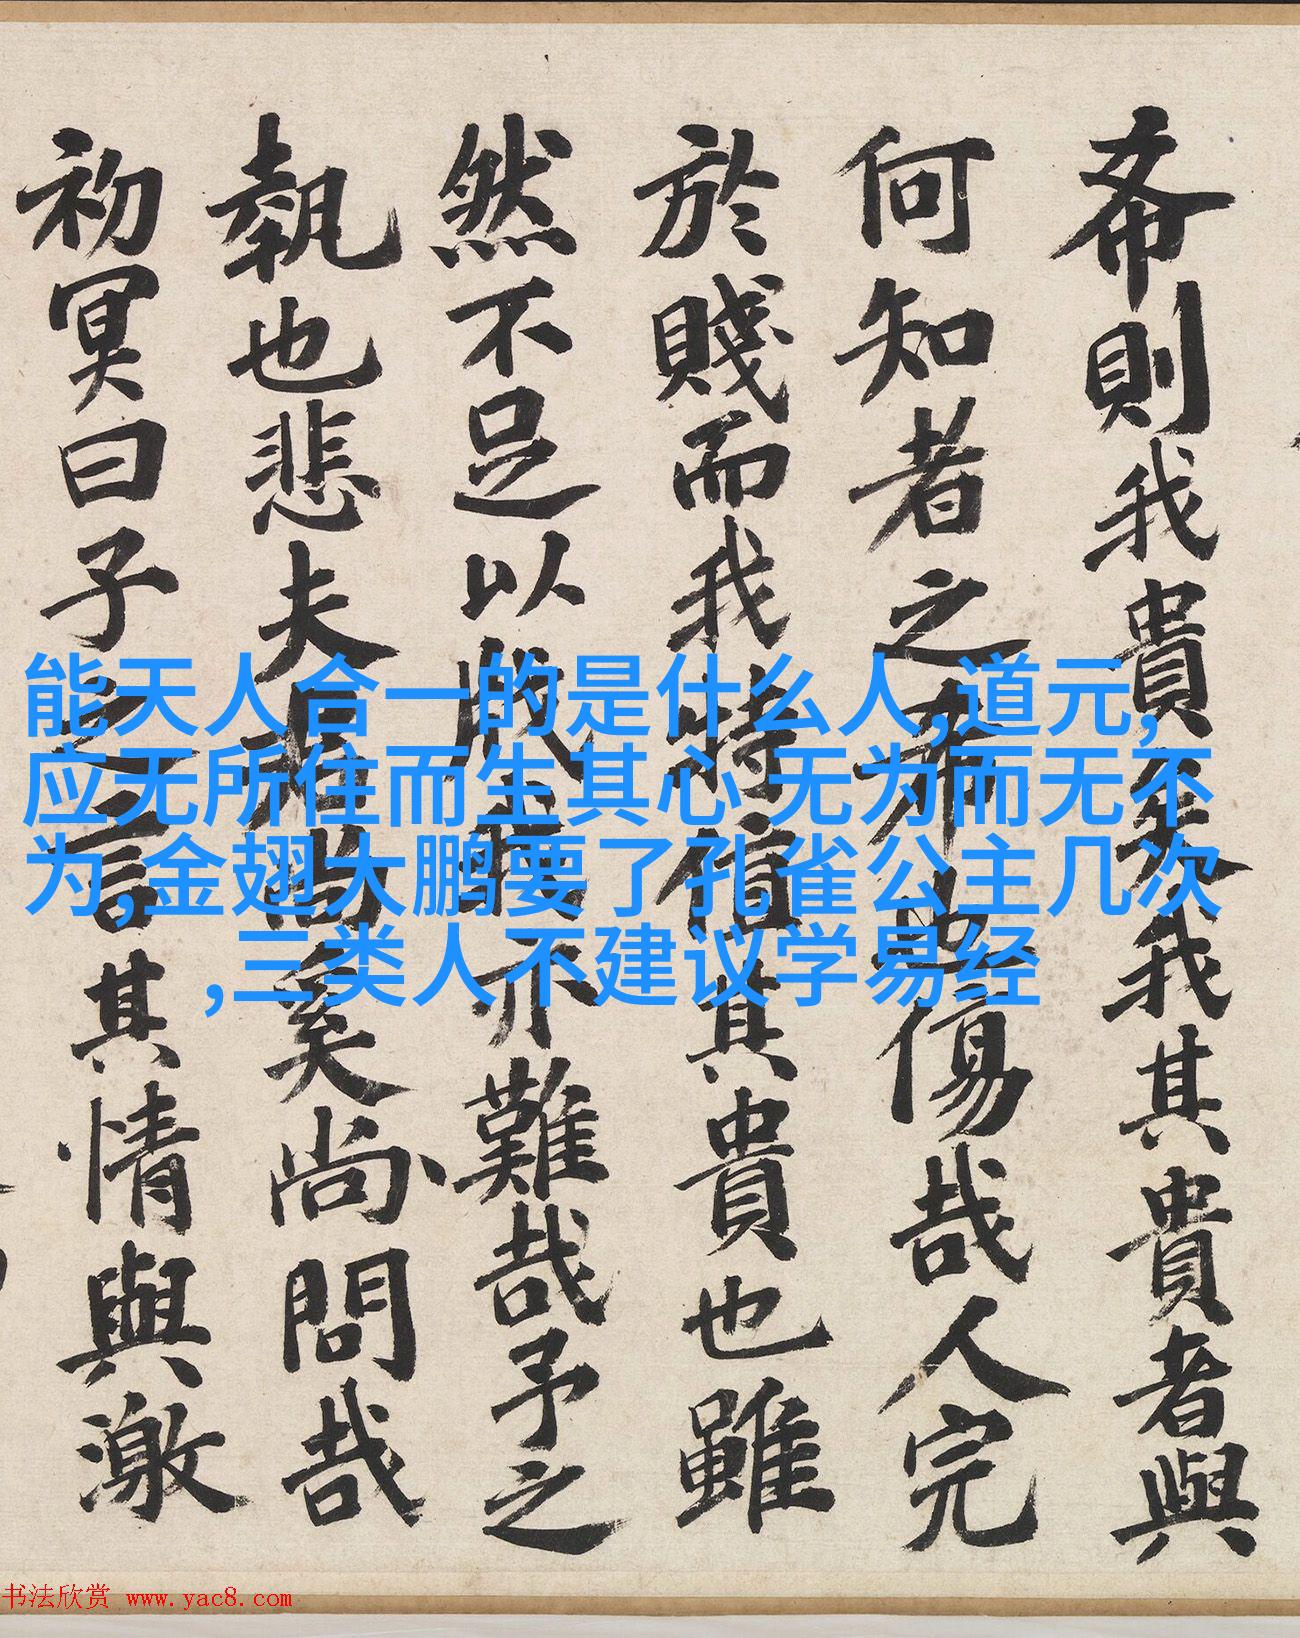 希則我貴矣我其貴者與
何知者之希也傷哉人完
於賤而我特值其貴也雖
然不足以亦難哉予之
執也悲夫奚尚問哉
初冥曰子之言其情與激
能天人合一的是什么人,道元,
应无所住而生其心 无为而无不
为,金翅大鹏要了孔雀公主几次
,三类人不建议学易经
书法欣赏 www.yac8.com